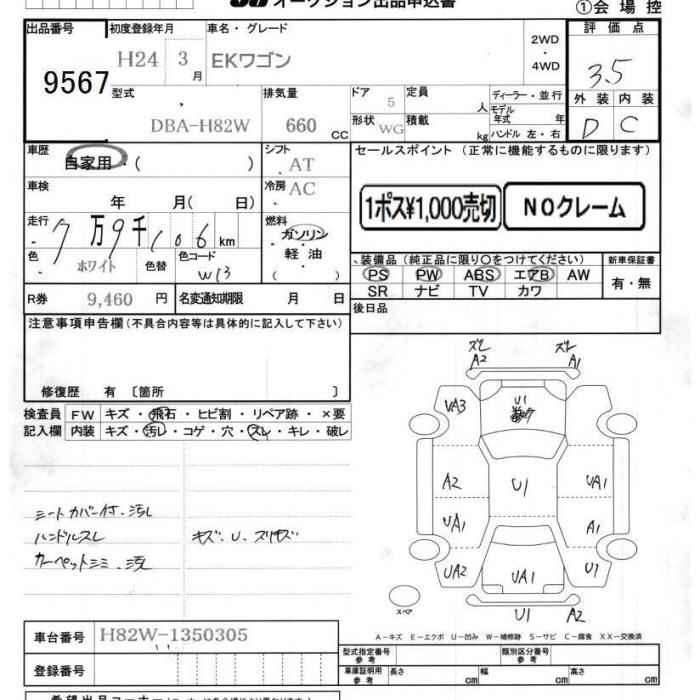 オークション出品申込書
①会場控
出品番号 初度登録年月 車名・グレード 評価点
9567 H24 3月 EKワゴン 2WD・4WD 3.5
型式 排気量 ドア 5 定員 人 ディーラー・並行 外装 内装
DBA-H82W 660 CC 形状 WG 積載 kg モデル年式 年 ハンドル 左・右 D C
車歴 自家用・( ) シフト AT セールスポイント (正常に機能するものに限ります)
車検 年 月( 日) 冷房 AC
1ポス¥1,000売切 NOクレーム
走行 7万9千106km 燃料 ガソリン・軽油( )
色 ホワイト 色替 色コード W13
装備品 (純正品に限り○をつけてください) 新車保証書
PS PW ABS エアB AW 有・無
SR ナビ TV カワ
R券 9,460 円 名変通知期限 月 日
後日品
注意事項申告欄 (不具合内容等は具体的に記入して下さい)
修復歴 有 〔箇所 〕
検査員記入欄 FW キズ・飛石・ヒビ割・リペア跡・×要
内装 キズ・汚レ・コゲ・穴・スレ・キレ・破レ
シートカバー付、汚レ
ハンドルスレ キズ、U、スリキズ
カーペットシミ、汚
ズレ ズレ
A2 A1
UA3 U1
A2 U1 UA1
UA1 A1
UA2 UA1 U1
スペア U1 A2
A-キズ E-エクボ U-凹み W-補修跡 S-サビ C-腐食 XX-交換済
車台番号 H82W-1350305
登録番号
型式指定番号 参考 類別区分番号 参考
車庫証明用 参考 長さ cm 幅 cm 高さ cm